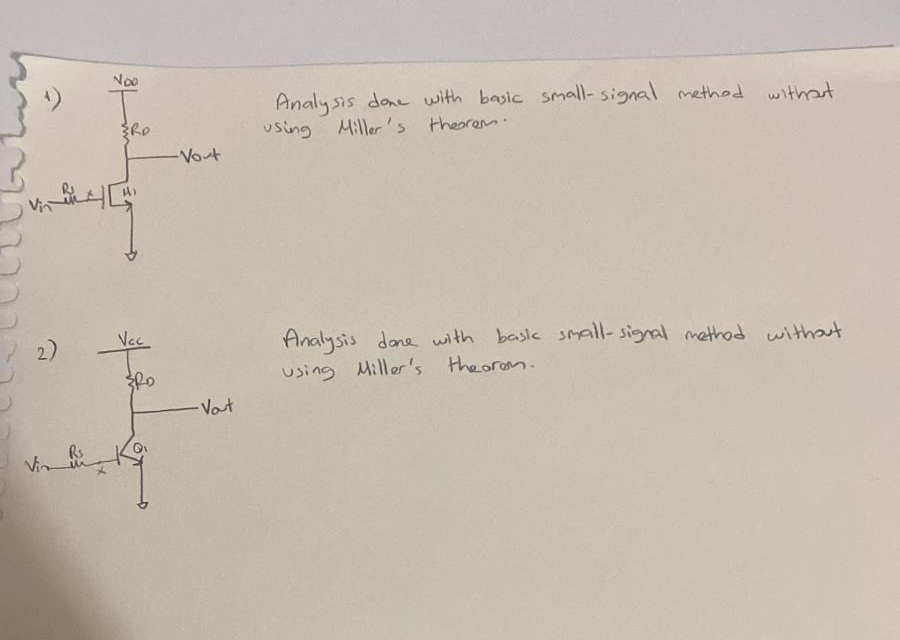 1)
VDD
RD
Vout
Rs
x
Vin
M1
Analysis done with basic small-signal method without
using Miller's theorem.
2)
Vcc
RD
Vout
Rs
x
Vin
Q1
Analysis done with basic small-signal method without
using Miller's theorem.